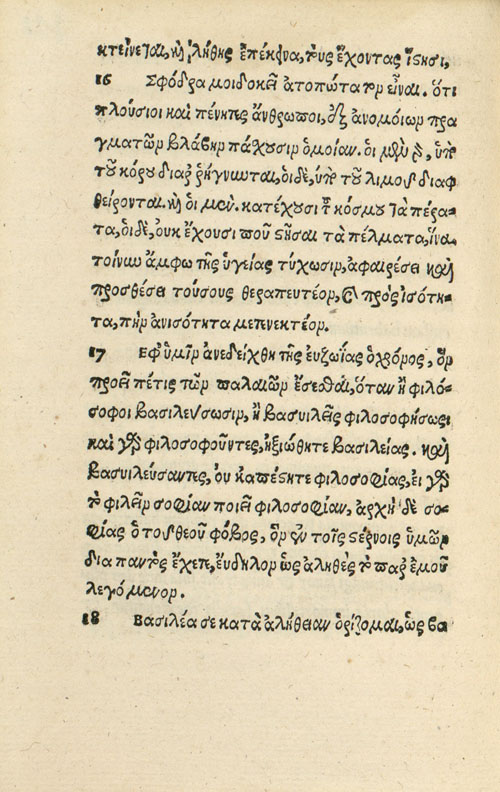 κτείνεται, καὶ λήθης ἐπέκεινα, τοὺς ἔχοντας ἵστησι,
16 Σφόδρα μοι δοκεῖ ἀτοπώτατον εἶναι. ὅτι
πλούσιοι καὶ πένητες ἄνθρωποι, ἐξ ἀνομοίων πρα
γματῶν βλάβην πάσχουσιν ὁμοίαν. οἱ μὲν γὸ, ὑπὸ
τοῦ κόρου διαρρήγνωται, οἱ δὲ, ὑπὸ τοῦ λιμοῦ διαφ
θείρονται. καὶ οἱ μὲν. κατέχουσι τοῦ κόσμου τὰ πέρα-
τα, οἱ δὲ, οὐκ ἔχουσι ποῦ στῆσαι τὰ πέλματα, ἵνα
τοίνυν ἄμφω τῆς ὑγείας τύχωσιν, ἀφαιρέσει καὶ
προσθέσει τούσους θεραπευτέον, καὶ πρὸς ἰσότη-
τα, τὴν ἀνισότητα μετενεκτέον.
17 Ἐφ' ὑμῖν ἀνεδείχθη τῆς εὐζωΐας ὁ χρόνος, ὃν
προεῖπέ τις τῶν παλαιῶν ἔσεσθαι, ὅταν ἢ φιλό-
σοφοι βασιλεύσωσιν, ἢ βασιλεῖς φιλοσοφήσωσι
καὶ γὸ φιλοσοφοῦντες, ἠξιώθητε βασιλείας. καὶ
βασιλεύσαντες, οὐ κατέστητε φιλοσοφίας, εἰ γὸ
τὸ φιλεῖν σοφίαν ποιεῖ φιλοσοφίαν, ἀρχὴ δὲ σο-
φίας ὁ τοῦ θεοῦ φόβος, ὃν ἐν τοῖς στέρνοις ὑμῶν
διαπαντὸς ἔχετε, εὔδηλον ὡς ἀληθὲς τὸ παρ' ἐμοῦ
λεγόμενον.
18 Βασιλέα σε κατὰ ἀλήθειαν ὁρίζομαι, ὡς βα